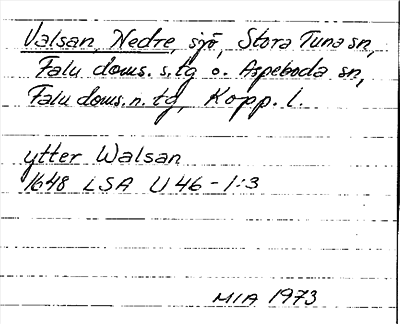 Valsan, Nedre, sjö, Stora Tuna sn,
Falu doms. s. tg o. Aspeboda sn,
Falu doms. n. tg, Kopp. l.
ytter Walsan
1648 LSA U 46 - 1:3
MIA 1973